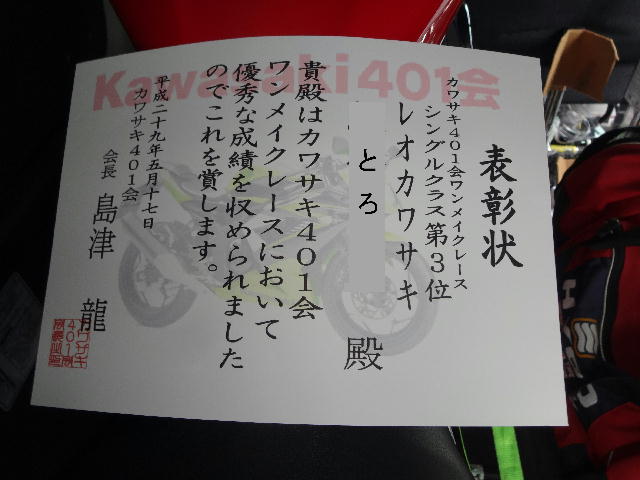 Kawasaki 401会
表彰状
カワサキ401会ワンメイクレース
シングルクラス第3位
レオカワサキ
とろ 殿
貴殿はカワサキ401会
ワンメイクレースにおいて
優秀な成績を収められました
のでこれを賞します。
平成二十九年五月十七日
カワサキ401会
会長 島津 龍